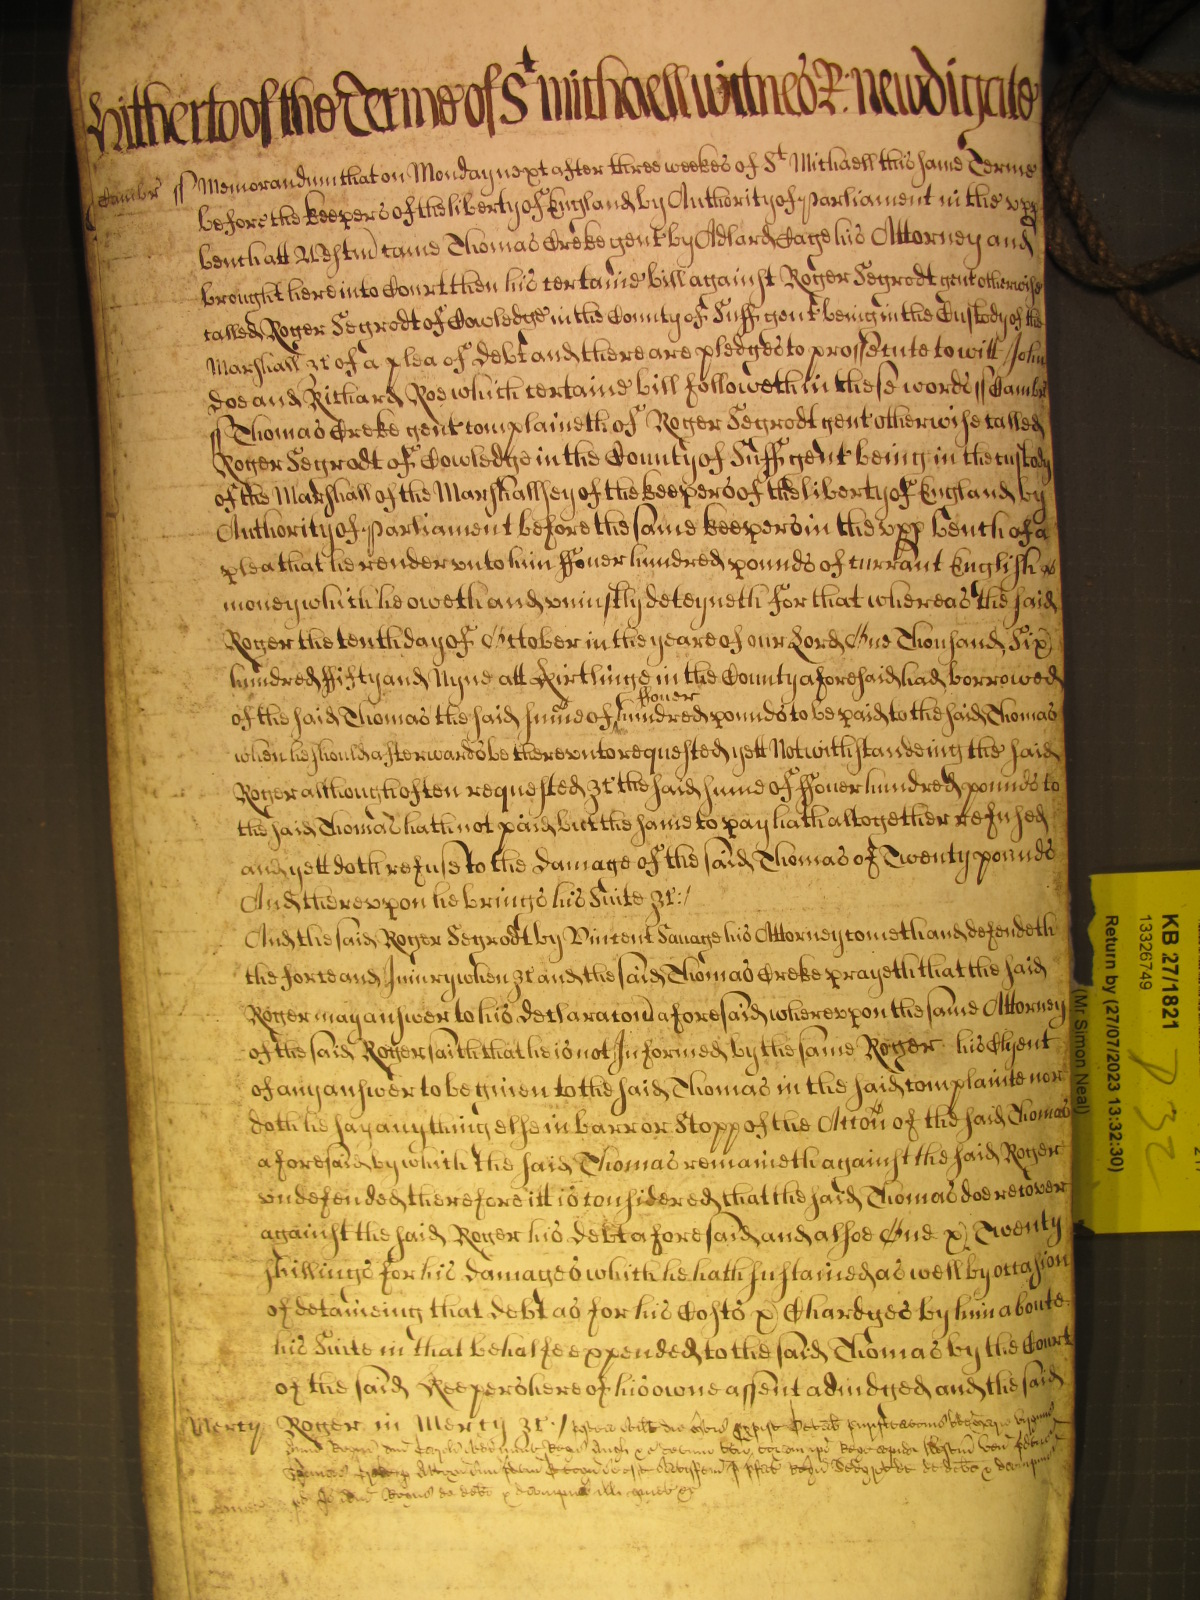 Hitherto of the Terme of St Michaell witnes R: Newdigate
Cambr ss Memorandum that on Monday next after three weekes of St Michaell this same Terme
before the keepers of the liberty of England by Authority of Parliament in the vpp
bench att Westm came Thomas Creke gent by Adlard Cage his Attorney and
brought here into Court then his certaine bill against Roger Segrodt gent otherwise
called Roger Segrodt of Cowledge in the County of Suff gent being in the Custody of the
Marshall &c of a plea of debt and there are pledges to prossecute to witt John
Doe and Richard Roe which certaine bill followeth in these words ss Cambr
ss Thomas Creke gent complaineth of Roger Segrodt gent otherwise called
Roger Segrodt of Cowledge in the County of Suff gent being in the custody
of the Marshall of the Marshallsey of the keepers of the liberty of England by
Authority of Parliament before the same keepers in the vpp bench of a
plea that he render vnto him ffower hundred pounds of currant English
money which he oweth and vniustly deteyneth for that whereas the said
Roger the tenth day of October in the yeare of our Lord One Thousand Six
hundred ffifty and Nyne att Kirtlinge in the County aforesaid had borrowed
of the said Thomas the said sume of ffower hundred pounds to be paid to the said Thomas
when he should afterwards be therevnto requested yett Notwithstandeing the said
Roger although often requested &c the said sume of ffower hundred pounds to
the said Thomas hath not paid but the same to pay hath altogether refused
and yett doth refuse to the damage of the said Thomas of Twenty pounds
And therevpon he brings his Suite &c:/
And the said Roger Segrodt by Vincent Sauage his Attorney cometh and defendeth
the force and Iniury when &c and the said Thomas Creke prayeth that the said
Roger may answer to his declaracon aforesaid wherevpon the same Attorney
of the said Roger saith that he is not Informed by the same Roger his Clyent
of any answer to be giuen to the said Thomas in the said complainte nor
doth he say any thing else in barr or Stopp of the Accon of the said Thomas
aforesaid by which the said Thomas remaineth against the said Roger
vndefended therefore itt is considered that the said Thomas doe recover
against the said Roger his debt aforesaid and alsoe One & Twenty
shillings for his damages which he hath sustained as well by occasion
of detaineing that debt as for his Costs & Chardges by him aboute
his Suite in that behalfe expended to the said Thomas by the Court
of the said Keepers here of his owne assent adiudged and the said
Mercy Roger in Mercy &c:/
KB 27/1821
13326749
Return by (27/07/2023 13:32:30)
(Mr Simon Neal)